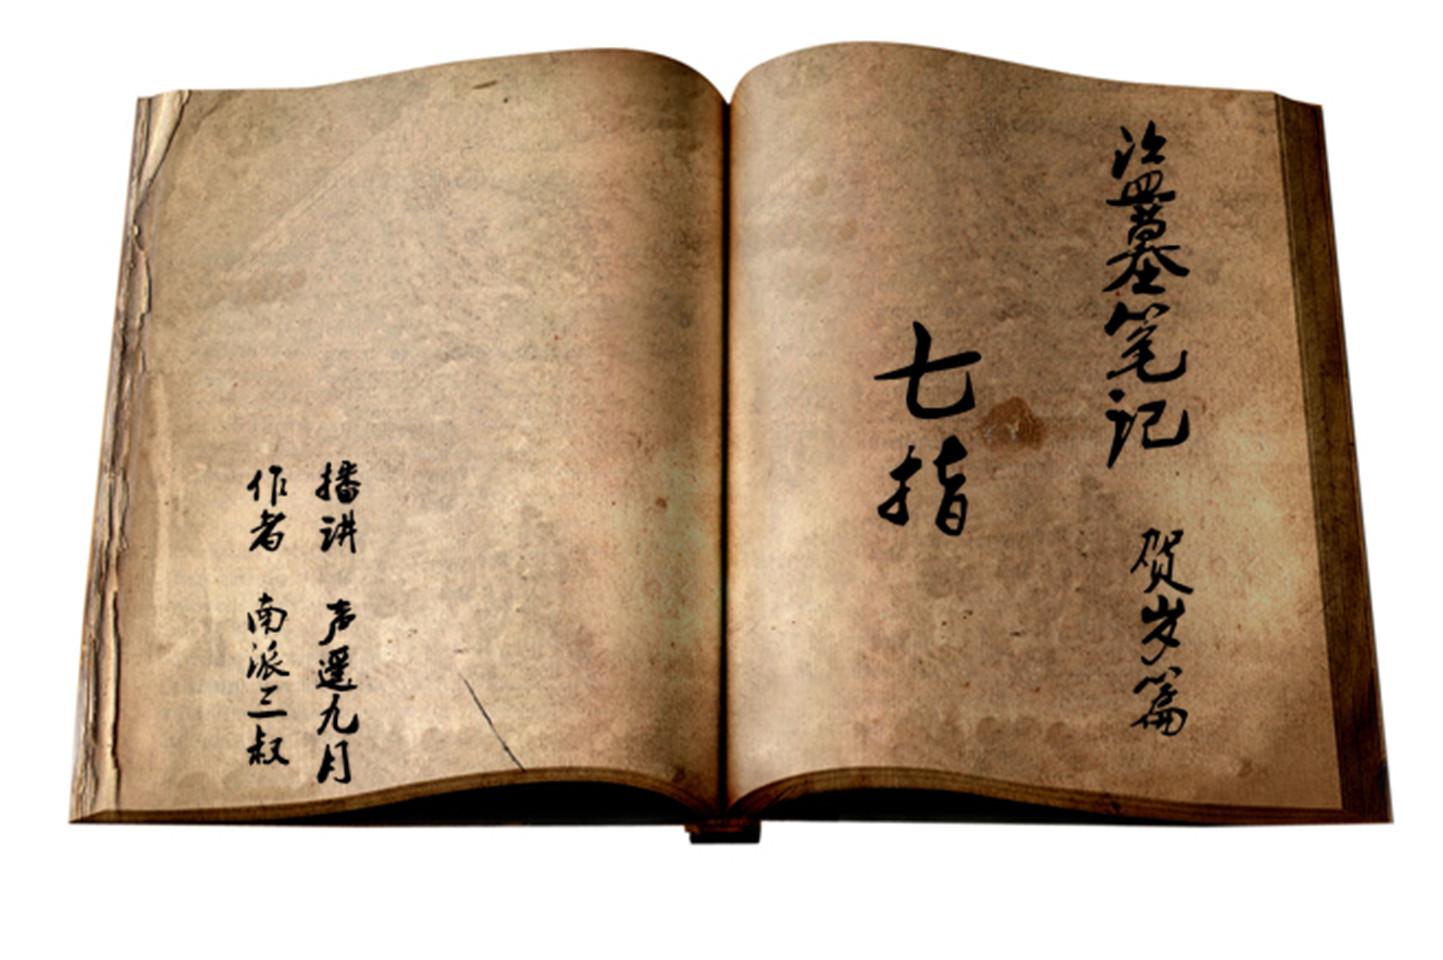 盗墓笔记 贺岁篇
七指
播讲 声遥九月
作者 南派三叔